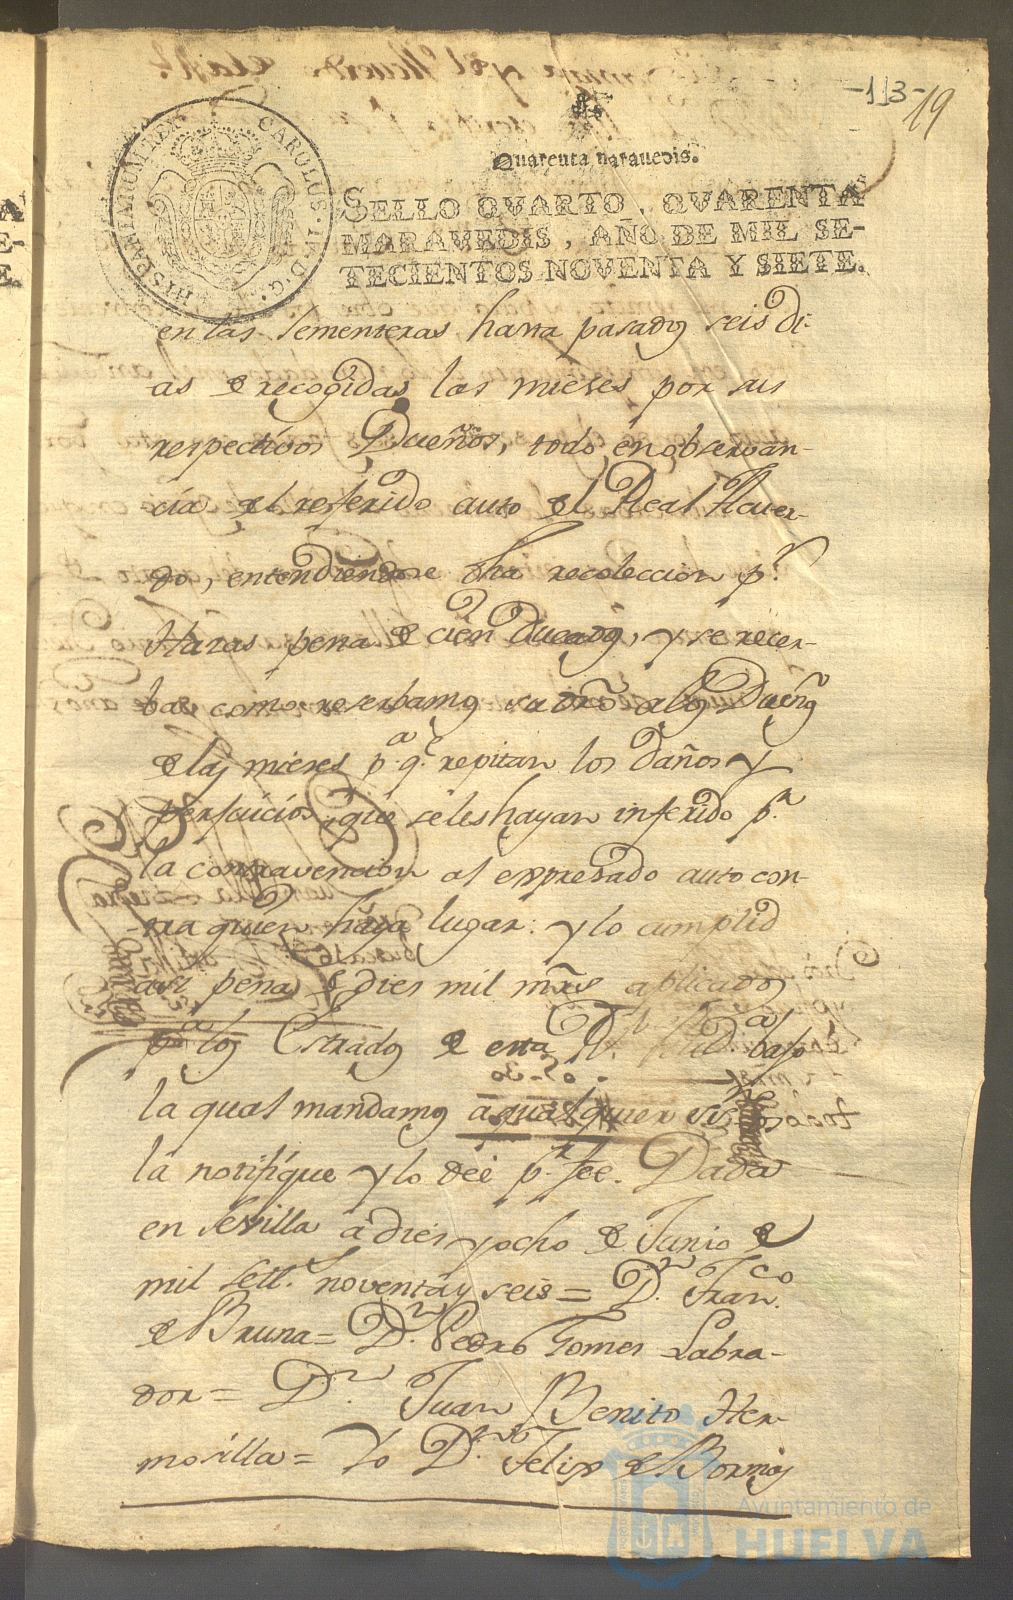 -113-
19
Quarenta maravedis.
SELLO QVARTO, QVARENTA
MARAVEDIS, AÑO DE MIL SE-
TECIENTOS NOVENTA Y SIETE.
CAROLUS · IV · D · G · HISPANIARUM REX
en las sementeras hasta pasados seis di-
as de recogidas las mieses por sus
respectivos Dueños, todo en observan-
cia del referido auto del Real Acuer-
do, entendiendose dha recoleccion pr.
Hazas pena de cien Ducados, y se recer-
ba como reserbamos su dro a los Dueños
de las mieses pa. qe. repitan los daños y
perjuicios, que se les hayan inferido pr.
la contravencion al expresado auto con-
tra quien haya lugar: y lo cumplid
asi pena de dies mil mrs aplicados
pa los Estrados de esta Rl. Auda. bajo
la qual mandamos a qualquier
la notifique y lo dee pr. fee. Dada
en Sevilla a dies y ocho de Junio de
mil sett. noventa y seis = Dn. Franco.
de Bruna = Dn. Pedro Gomes Labra-
dor = Dn. Juan Benito Her-
mosilla = Yo Dn. Felix de Bormas
Ayuntamiento de
HUELVA